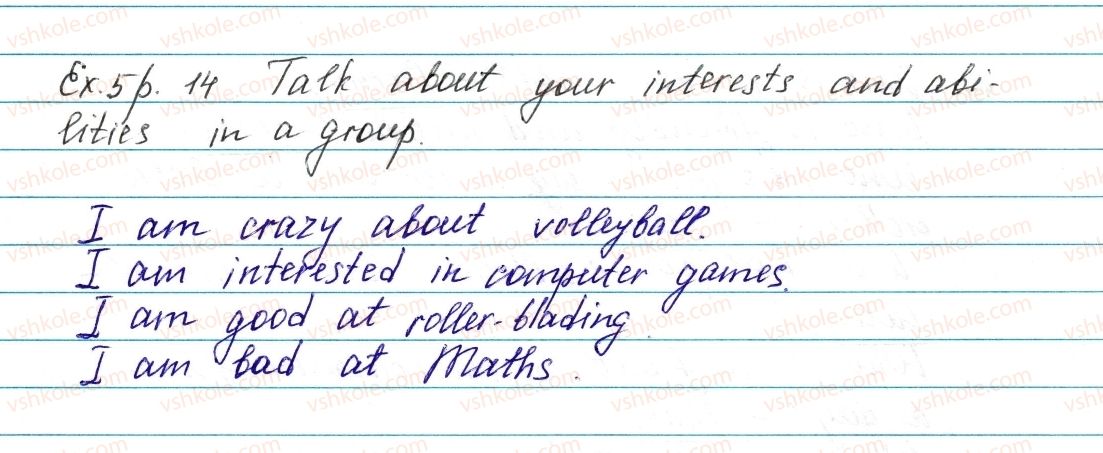 Ex. 5 p. 14 Talk about your interests and abi-
lities in a group.
I am crazy about volleyball.
I am interested in computer games.
I am good at roller-blading.
I am bad at Maths.